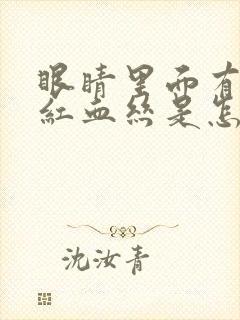 眼睛里面有
红血丝是怎
沈汝青